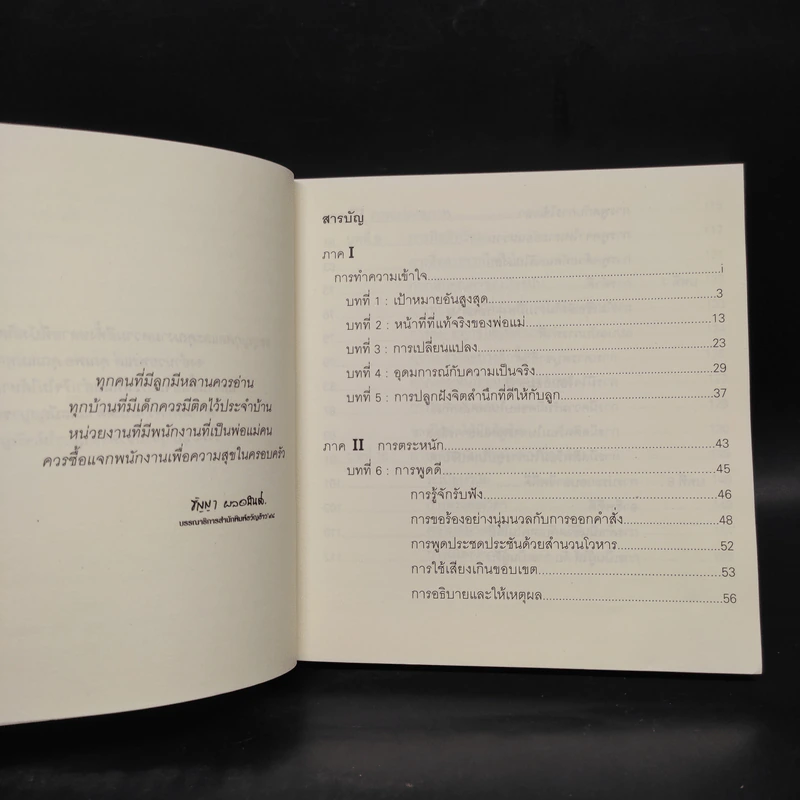 ทุกคนที่มีลูกมีหลานควรอ่าน
ทุกบ้านที่มีเด็กควรมีติดไว้ประจำบ้าน
หน่วยงานที่มีพนักงานที่เป็นพ่อแม่คน
ควรซื้อแจกพนักงานเพื่อความสุขในครอบครัว
บรรณาธิการสำนักพิมพ์ขวัญข้าว'๙๔
สารบัญ
ภาค I
การทำความเข้าใจ i
บทที่ 1 : เป้าหมายอันสูงสุด 3
บทที่ 2 : หน้าที่ที่แท้จริงของพ่อแม่ 13
บทที่ 3 : การเปลี่ยนแปลง 23
บทที่ 4 : อุดมการณ์กับความเป็นจริง 29
บทที่ 5 : การปลูกฝังจิตสำนึกที่ดีให้กับลูก 37
ภาค II การตระหนัก 43
บทที่ 6 : การพูดดี 45
การรู้จักรับฟัง 46
การขอร้องอย่างนุ่มนวลกับการออกคำสั่ง 48
การพูดประชดประชันด้วยสำนวนโวหาร 52
การใช้เสียงเกินขอบเขต 53
การอธิบายและให้เหตุผล 56